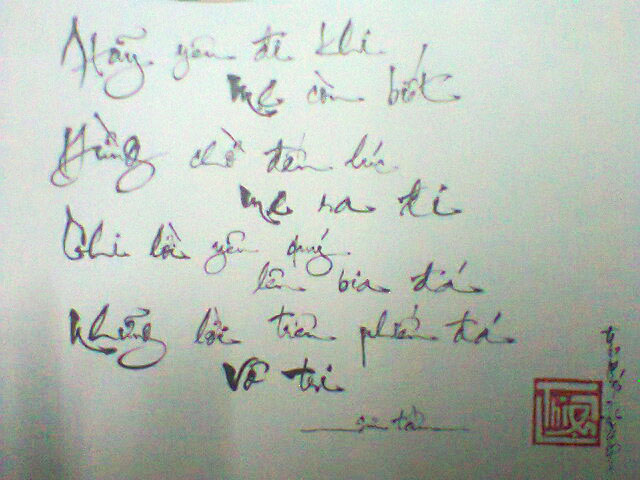 Hãy yêu đi khi
Mẹ còn biết
Đừng chờ đến lúc
Mẹ ra đi
Ghi lời yêu quý
lên bia đá
Những lời trên phiến đá
Vô tri